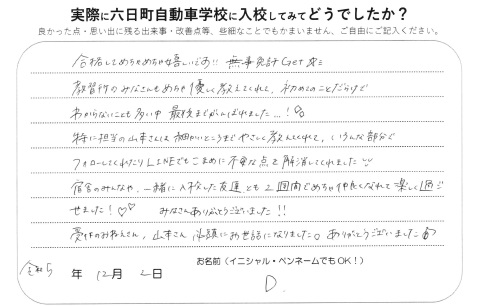 実際に六日町自動車学校に入校してみてどうでしたか?
良かった点・思い出に残る出来事・改善点等、些細なことでもかまいません、ご自由にご記入ください。
合格してめちゃめちゃ嬉しいです!! 無事免許Get
教習所のみなさんもめちゃ優しく教えてくれて、初めてのことだらけで
わからないことも多い中 最後までがんばれました...!
特に担当の山本さんは細かいところまでやさしく教えてくれて、いろんな部分で
フォローしてくれたりLINEでもこまめに不安な点を解消してくれました
宿舎のみんなや、一緒に入校した友達とも2週間でめちゃ仲良くなれて楽しく過ご
せました!♡♡ みなさんありがとうございました!!
受付のお姉さん、山本さん 笑顔にお世話になりました。ありがとうございました
令和5年 12月 2日
お名前(イニシャル・ペンネームでもOK!)
D.